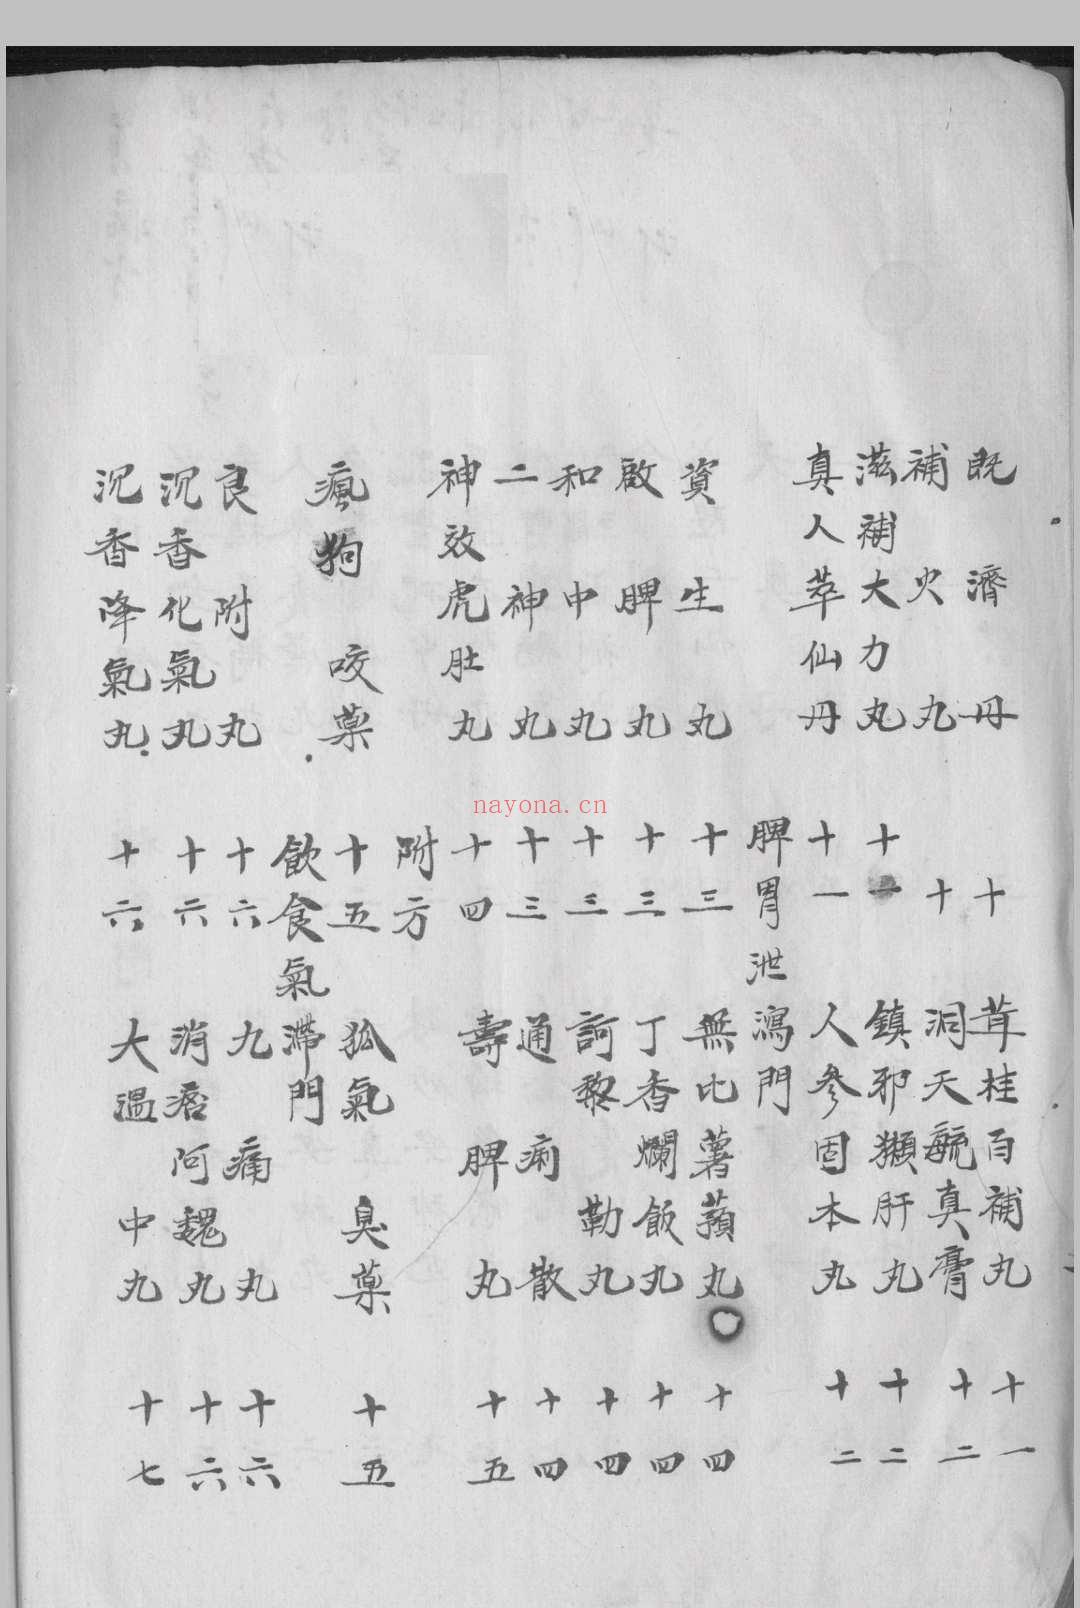 既濟丹 十 茸桂百補丸 十一
補火丸 十 洞天毓真膏 十二
滋補大力丸 十一 鎮邪獺肝丸 十二
真人萃仙丹 十一 人參固本丸 十二
脾胃泄瀉門
資生丸 十三 無比薯蕷丸 十四
啟脾丸 十三 丁香爛飯丸 十四
和中丸 十三 訶黎勒丸 十四
二神丸 十三 通痢散 十四
神效虎肚丸 十四 壽脾丸 十五
附方
瘋狗咬藥 十五 狐氣臭藥 十五
飲食氣滯門
良附丸 十六 九痛丸 十六
沉香化氣丸 十六 消痞阿魏丸 十六
沉香降氣丸 十六 大溫中丸 十七
nayona.cn